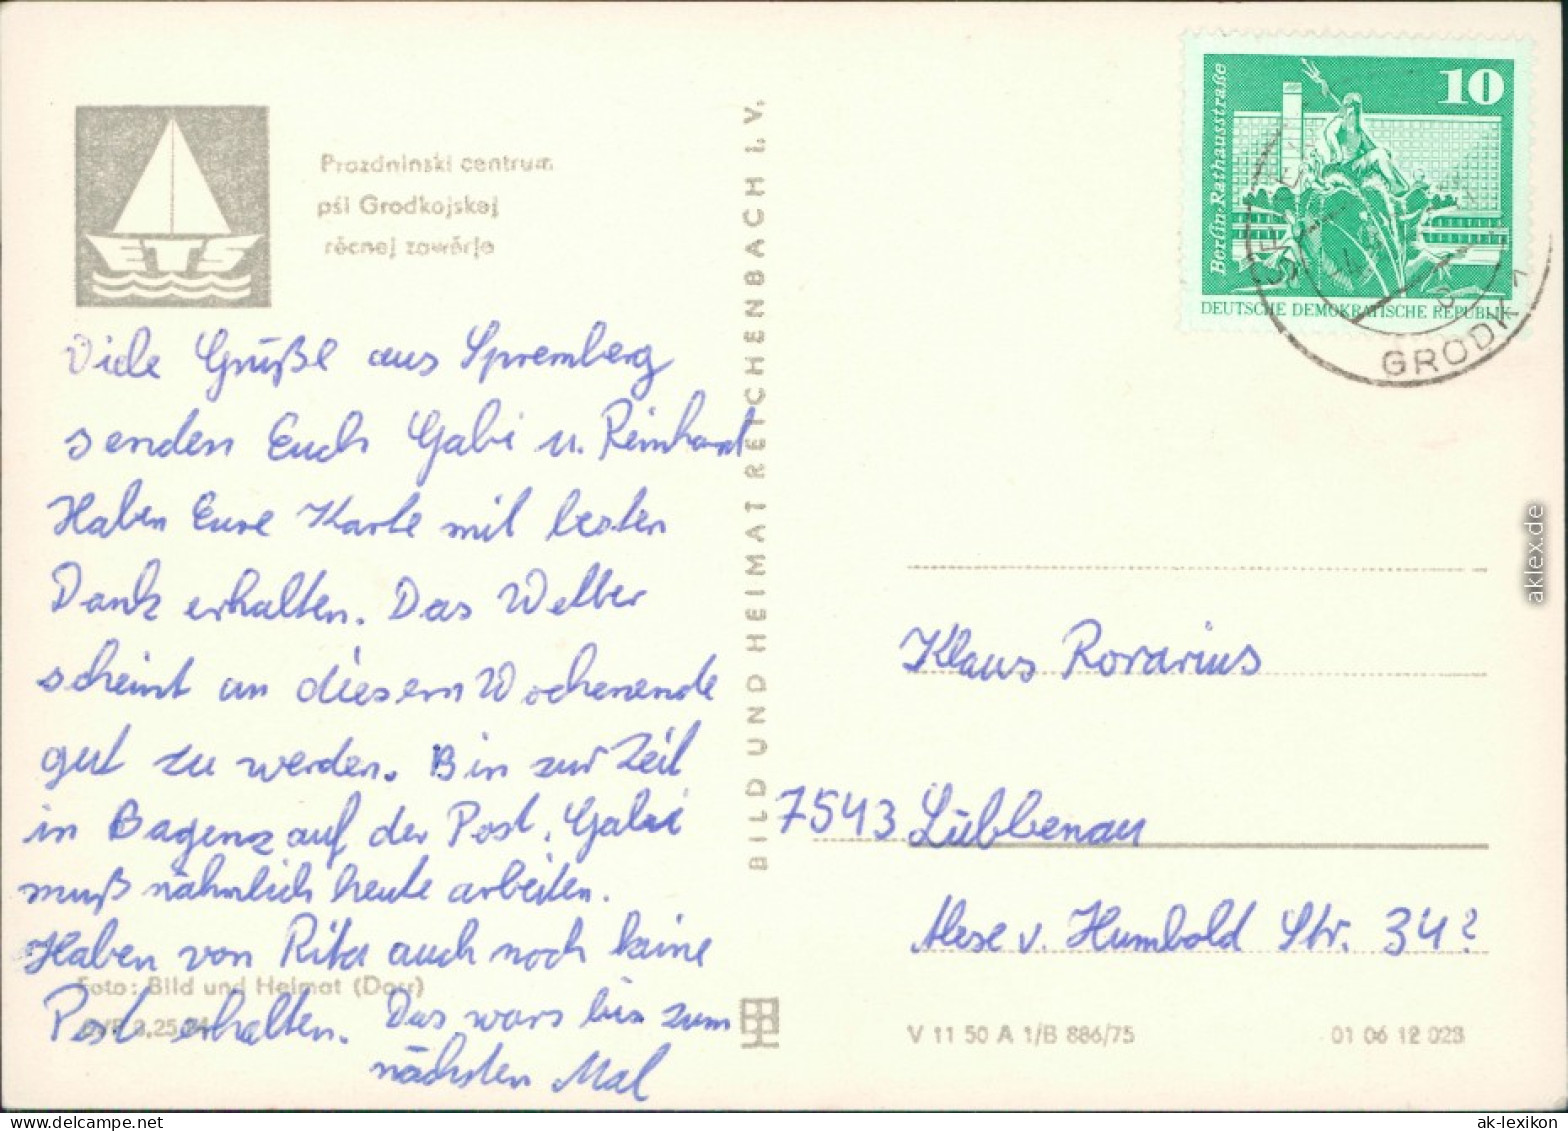 ETS
Prozdninski centrum
pśi Grodkojskej
rěcnej zawěrje
Viele Grüße aus Spremberg
senden Euch Gabi u. Reinhard
Haben Eure Karte mit besten
Dank erhalten. Das Wetter
scheint an diesem Wochenende
gut zu werden. Bin zur Zeit
in Bagenz auf der Post. Gabi
muß nähmlich heute arbeiten.
Haben von Rita auch noch keine
Post erhalten. Das wars bis zum
nächsten Mal
Foto: Bild und Heimat (Dorr)
BILD UND HEIMAT REICHENBACH I. V.
10
Berlin-Rathausstraße
DEUTSCHE DEMOKRATISCHE REPUBLIK
GRODK 1
Klaus Rorarius
7543 Lübbenau
Alexe v. Humbold Str. 34?
V 11 50 A 1/B 886/75
01 06 12 023
aklex.de
ak-lexikon